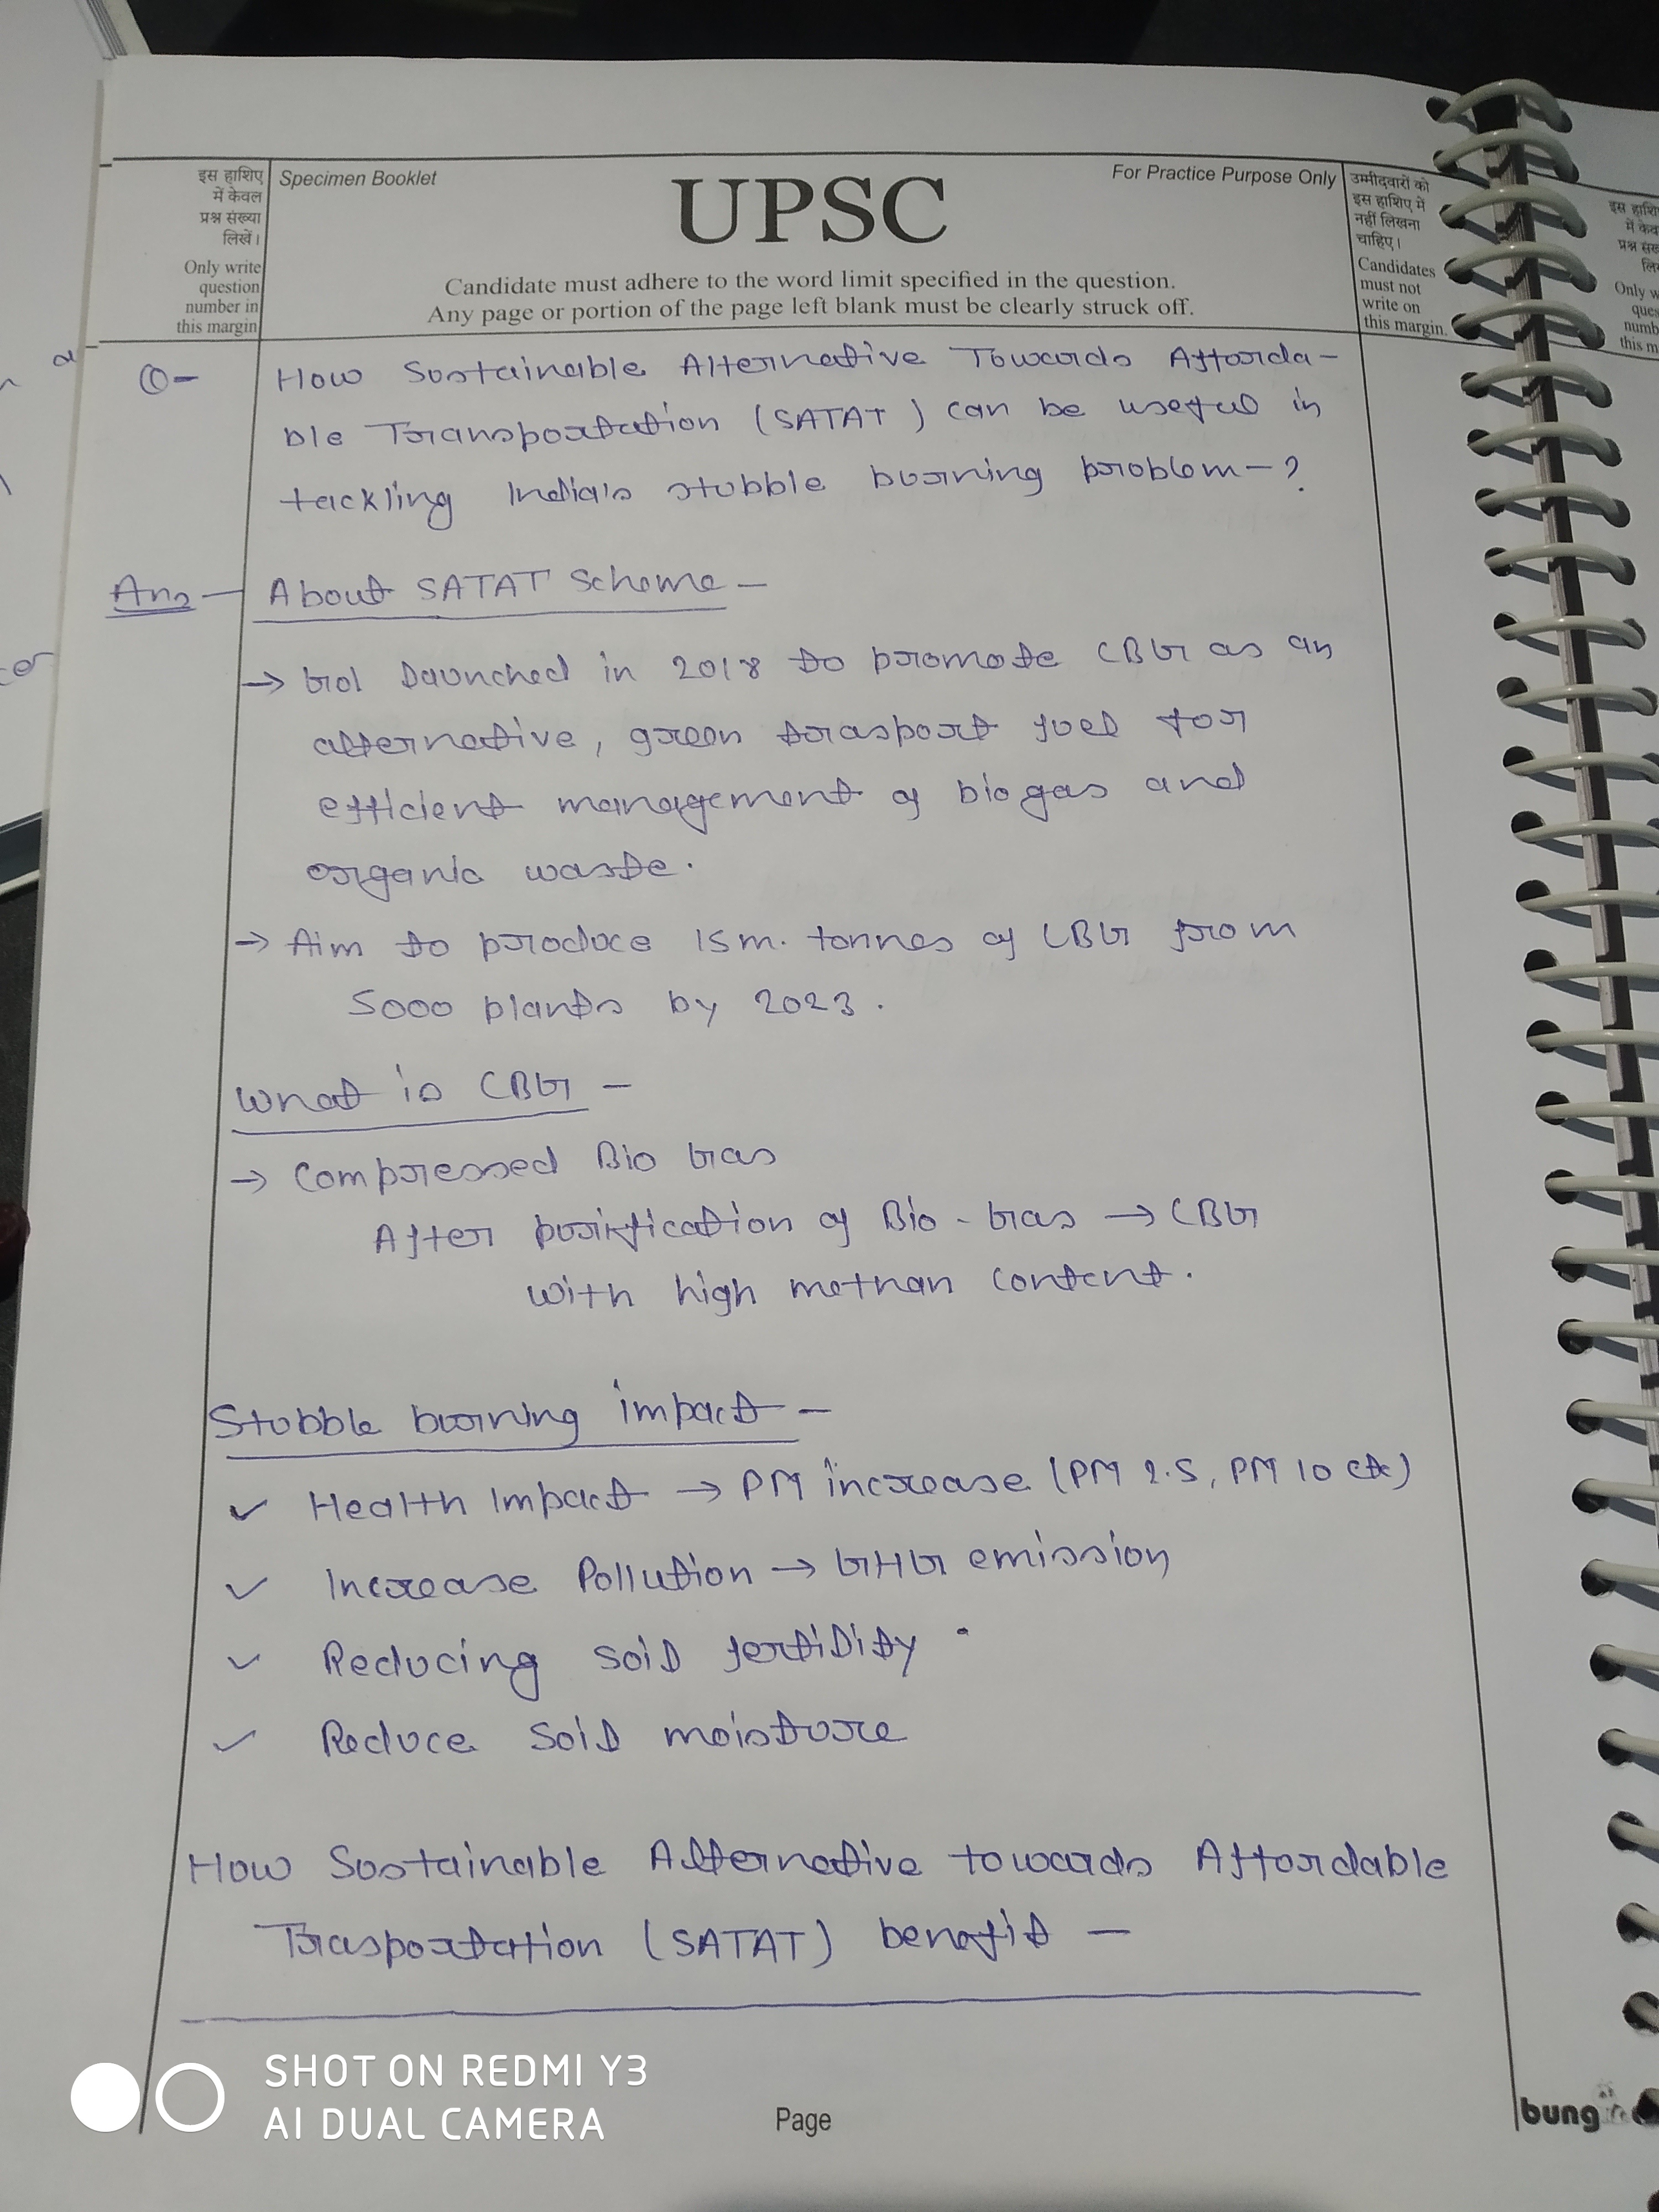 इस हाशिए
में केवल
प्रश्न संख्या
लिखें।
Only write
question
number in
this margin
Specimen Booklet
UPSC
For Practice Purpose Only
Candidate must adhere to the word limit specified in the question.
Any page or portion of the page left blank must be clearly struck off.
उम्मीदवारों को
इस हाशिए में
नहीं लिखना
चाहिए।
Candidates
must not
write on
this margin.
Q- How Sustainable Alternative Towards Afforda-
ble Transportation (SATAT) can be useful in
tackling India's stubble burning problem-?
Ans - About SATAT Scheme -
→ GoI launched in 2018 to promote CBG as an
alternative, green trasport fuel for
efficient management of biogas and
organic waste.
→ Aim to produce 15 m. tonnes of CBG from
5000 plants by 2023.
What is CBG -
→ Compressed Bio Gas
After purification of Bio-Gas → CBG
with high methan content.
Stubble burning impact -
✓ Health Impact → PM increase (PM 2.5, PM 10 etc)
✓ Increase Pollution → GHG emission
✓ Reducing soil fertility.
✓ Reduce soil moisture
How Sustainable Alternative towards Affordable
Trasportation (SATAT) benefit -
SHOT ON REDMI Y3
AI DUAL CAMERA
Page
bung